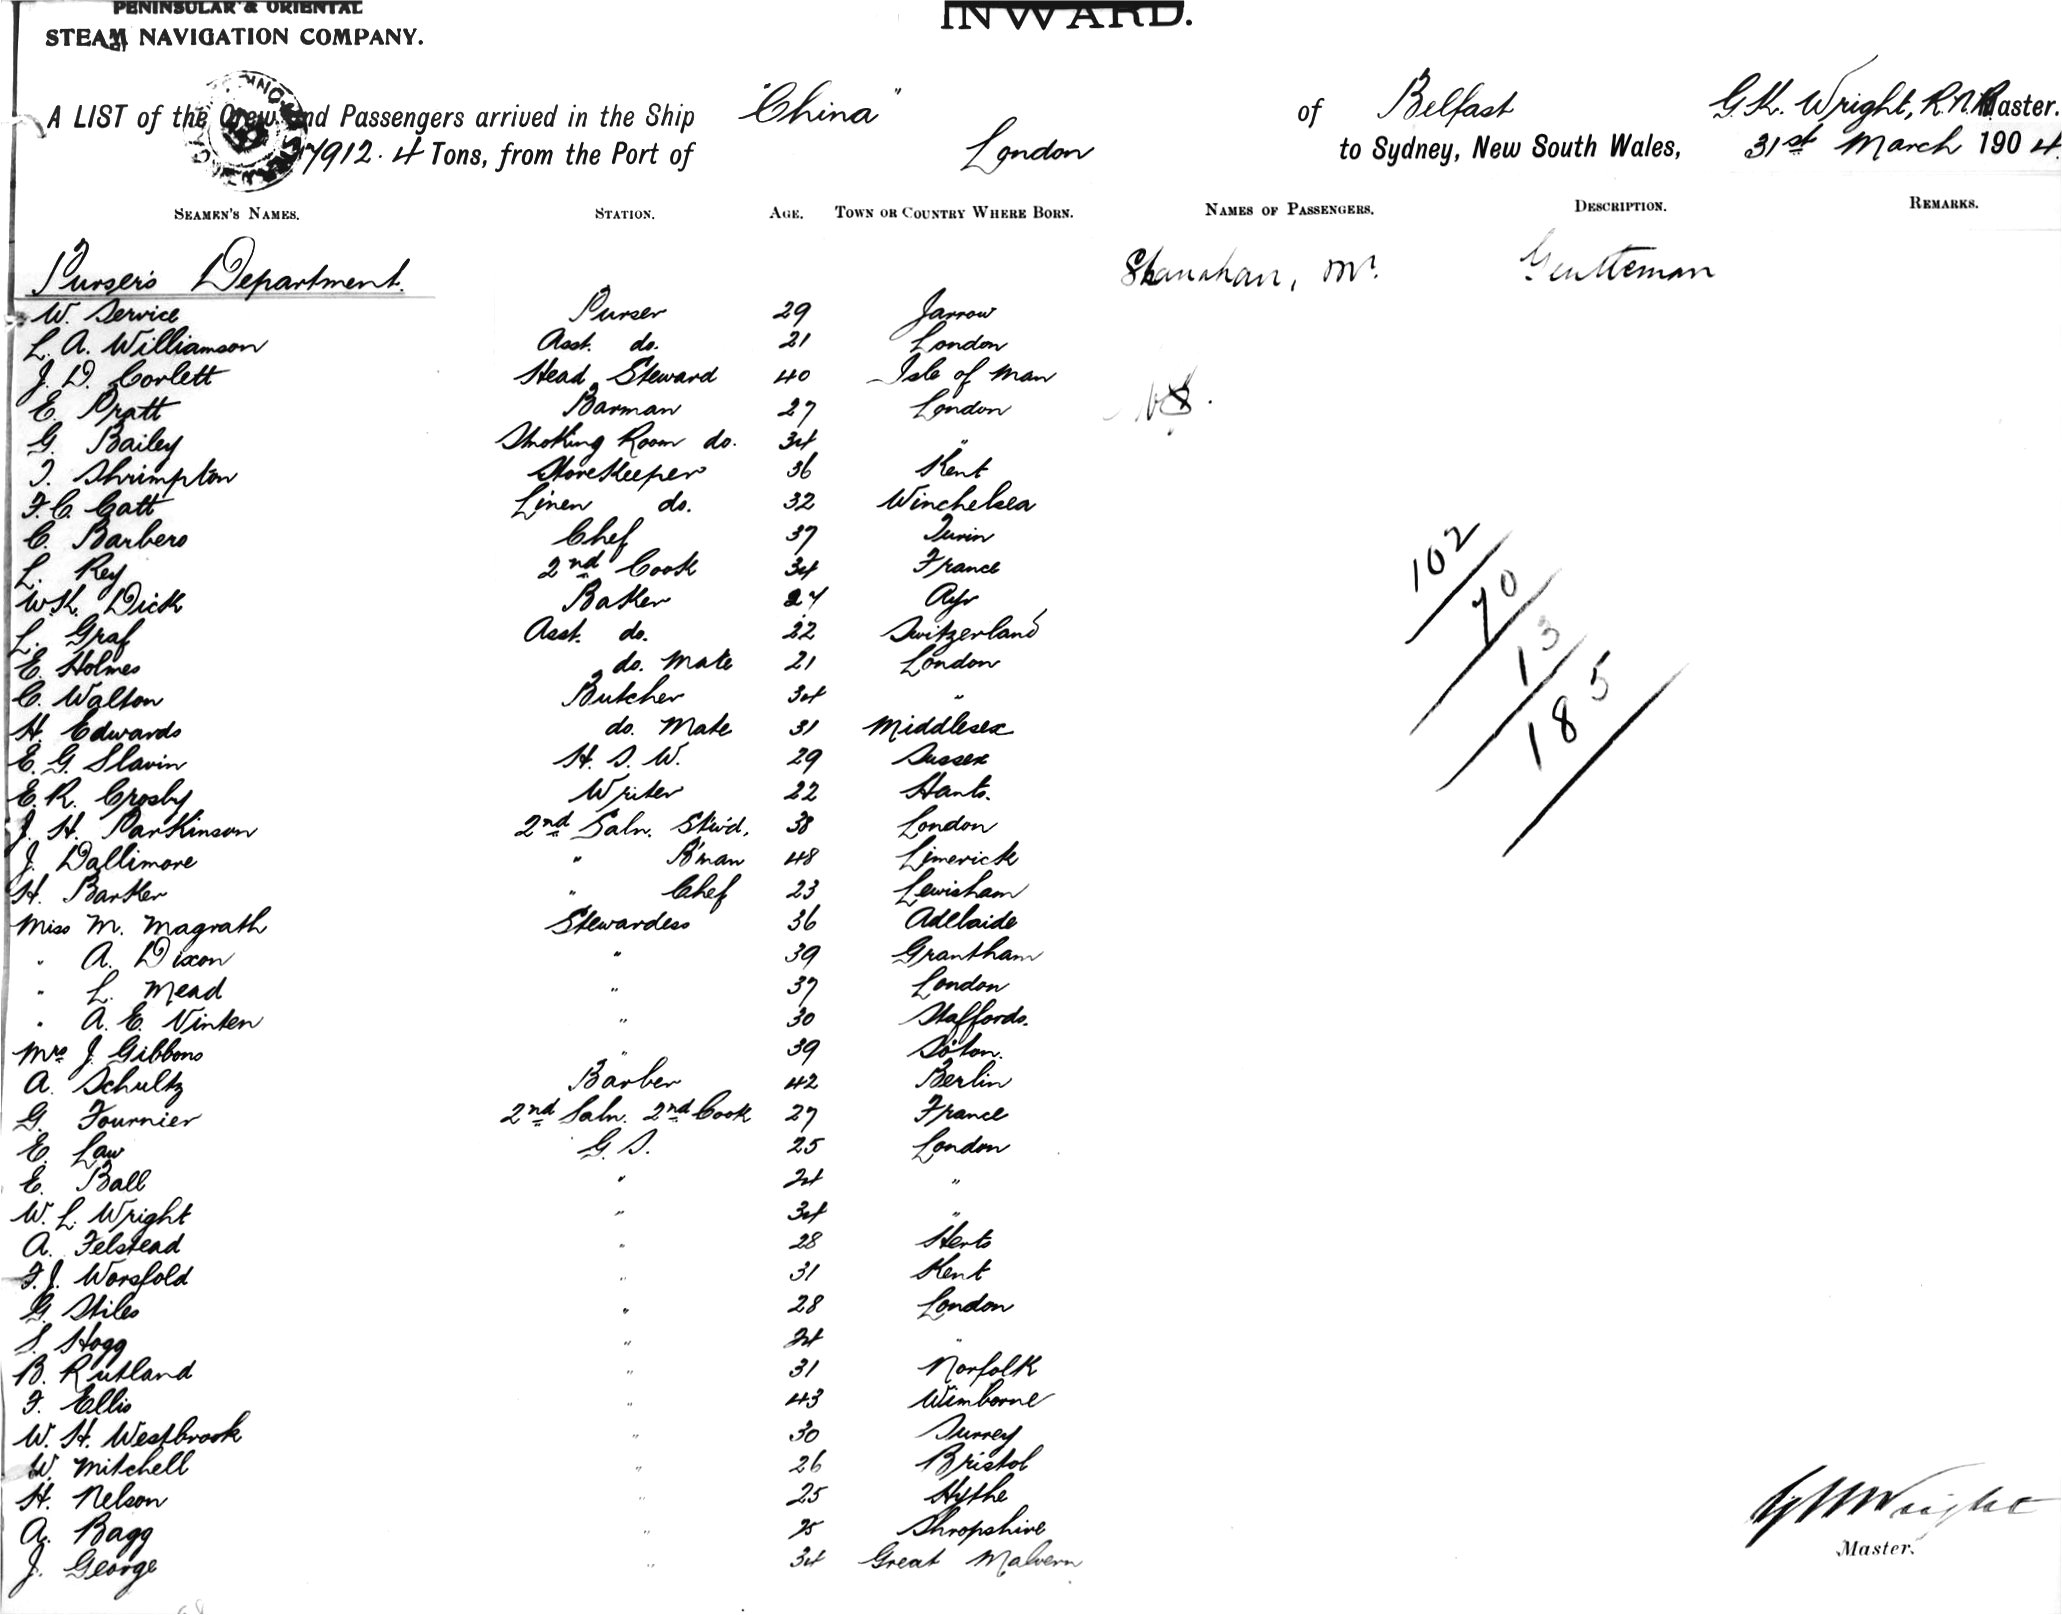 PENINSULAR & ORIENTAL
STEAM NAVIGATION COMPANY.
INWARD.
A LIST of the Crew and Passengers arrived in the Ship "China" of Belfast G.K. Wright, R.N.R. Master.
7912.4 Tons, from the Port of London to Sydney, New South Wales, 31st March 1904.
SEAMEN'S NAMES. STATION. AGE. TOWN OR COUNTRY WHERE BORN. NAMES OF PASSENGERS. DESCRIPTION. REMARKS.
Purser's Department. Shanahan, Mr. Gentleman
W. Service Purser 29 Jarrow
L. A. Williamson Asst. do. 21 London
J. D. Corlett Head Steward 40 Isle of Man
E. Pratt Barman 27 London
G. Bailey Smoking Room do. 34 "
T. Shrimpton Storekeeper 36 Kent
F. C. Catt Linen do. 32 Winchelsea
C. Barbero Chef 37 Turin
L. Rey 2nd Cook 34 France
W.K. Dick Baker 27 Ayr
L. Graf Asst. do. 22 Switzerland
E. Holmes do. Mate 21 London
C. Walton Butcher 34 "
H. Edwards do. Mate 31 Middlesex
E. G. Slavin H. S. W. 29 Sussex
E. R. Crosby Writer 22 Hants.
J. H. Parkinson 2nd Saln. Stw'd. 38 London
J. Dallimore " B'man 48 Limerick
H. Barker " Chef 23 Lewisham
Miss M. Magrath Stewardess 36 Adelaide
" A. Dixon " 39 Grantham
" L. Mead " 37 London
" A. E. Vinten " 30 Staffords.
Mrs J. Gibbons " 39 So'ton.
A. Schultz Barber 42 Berlin
G. Fournier 2nd Saln. 2nd Cook 27 France
E. Law G. S. 25 London
E. Ball " 24 "
W. L. Wright " 34 "
A. Felstead " 28 Herts
F. J. Worsfold " 31 Kent
G. Stiles " 28 London
S. Hogg " 24 "
B. Rutland " 31 Norfolk
F. Ellis " 43 Wimborne
W. H. Westbrook " 30 Surrey
W. Mitchell " 26 Bristol
H. Nelson " 25 Hythe
A. Bagg " 25 Shropshire
J. George " 34 Great Malvern
102
70
13
185
G K Wright
Master.